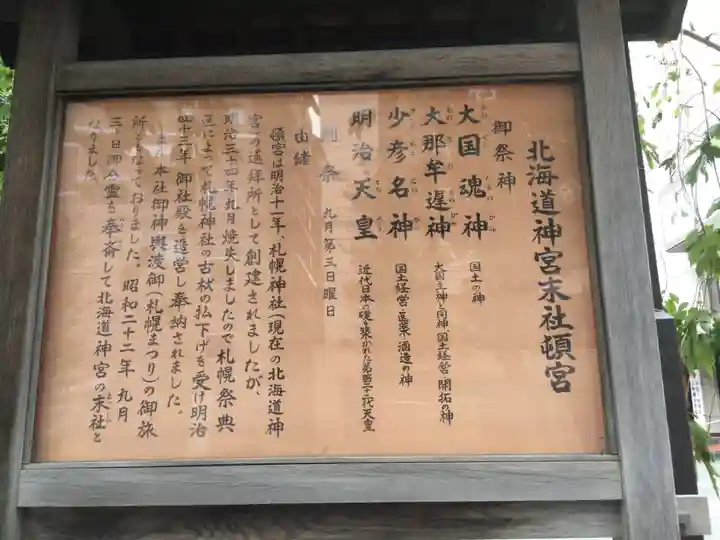 北海道神宮末社頓宮
御祭神
大国魂神 国土の神
大那牟遅神 大国主神と同神、国土経営・開拓の神
少彦名神 国土経営・医薬・酒造の神
明治天皇 近代日本の礎を築かれた第百二十二代天皇
例祭 九月第三日曜日
由緒
頓宮は明治十一年、札幌神社(現在の北海道神
宮)の遥拝所として創建されましたが、
明治三十四年九月焼失しましたので札幌祭典
区によって札幌神社の古材の払下げを受け明治
四十二年御社殿を造営し奉納されました。
本社御神輿渡御(札幌まつり)の御旅
所となっておりました。昭和二十二年九月
三十日御分霊を奉斎して北海道神宮の末社と
なりました。